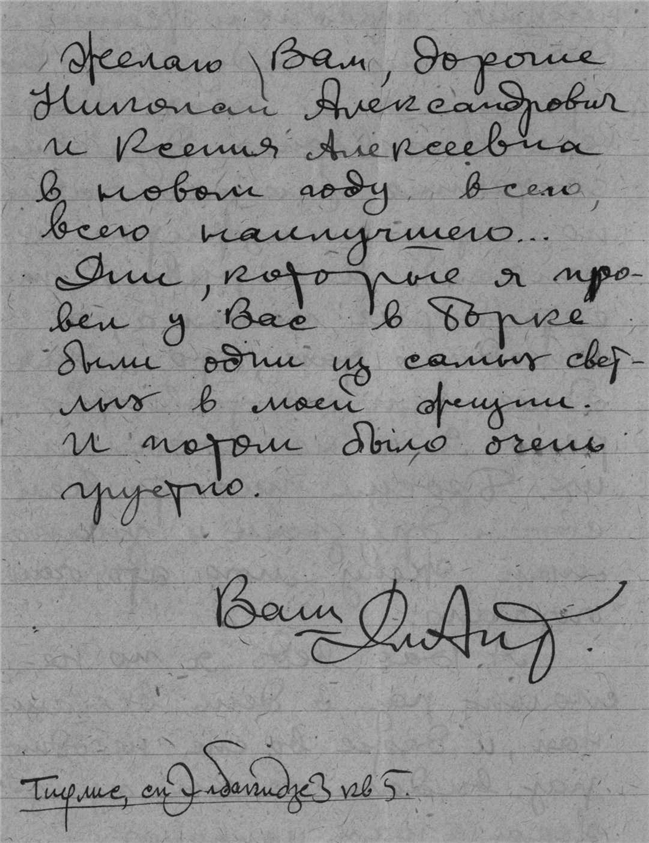 Желаю Вам, дорогие
Николай Александрович
и Ксения Алексеевна
в новом году всего,
всего наилучшего...
Дни, которые я про-
вел у Вас в Борке
были одни из самых свет-
лых в моей жизни.
И потом было очень
грустно.
Ваш
Тифлис, Элбакидзе 3 кв 5.